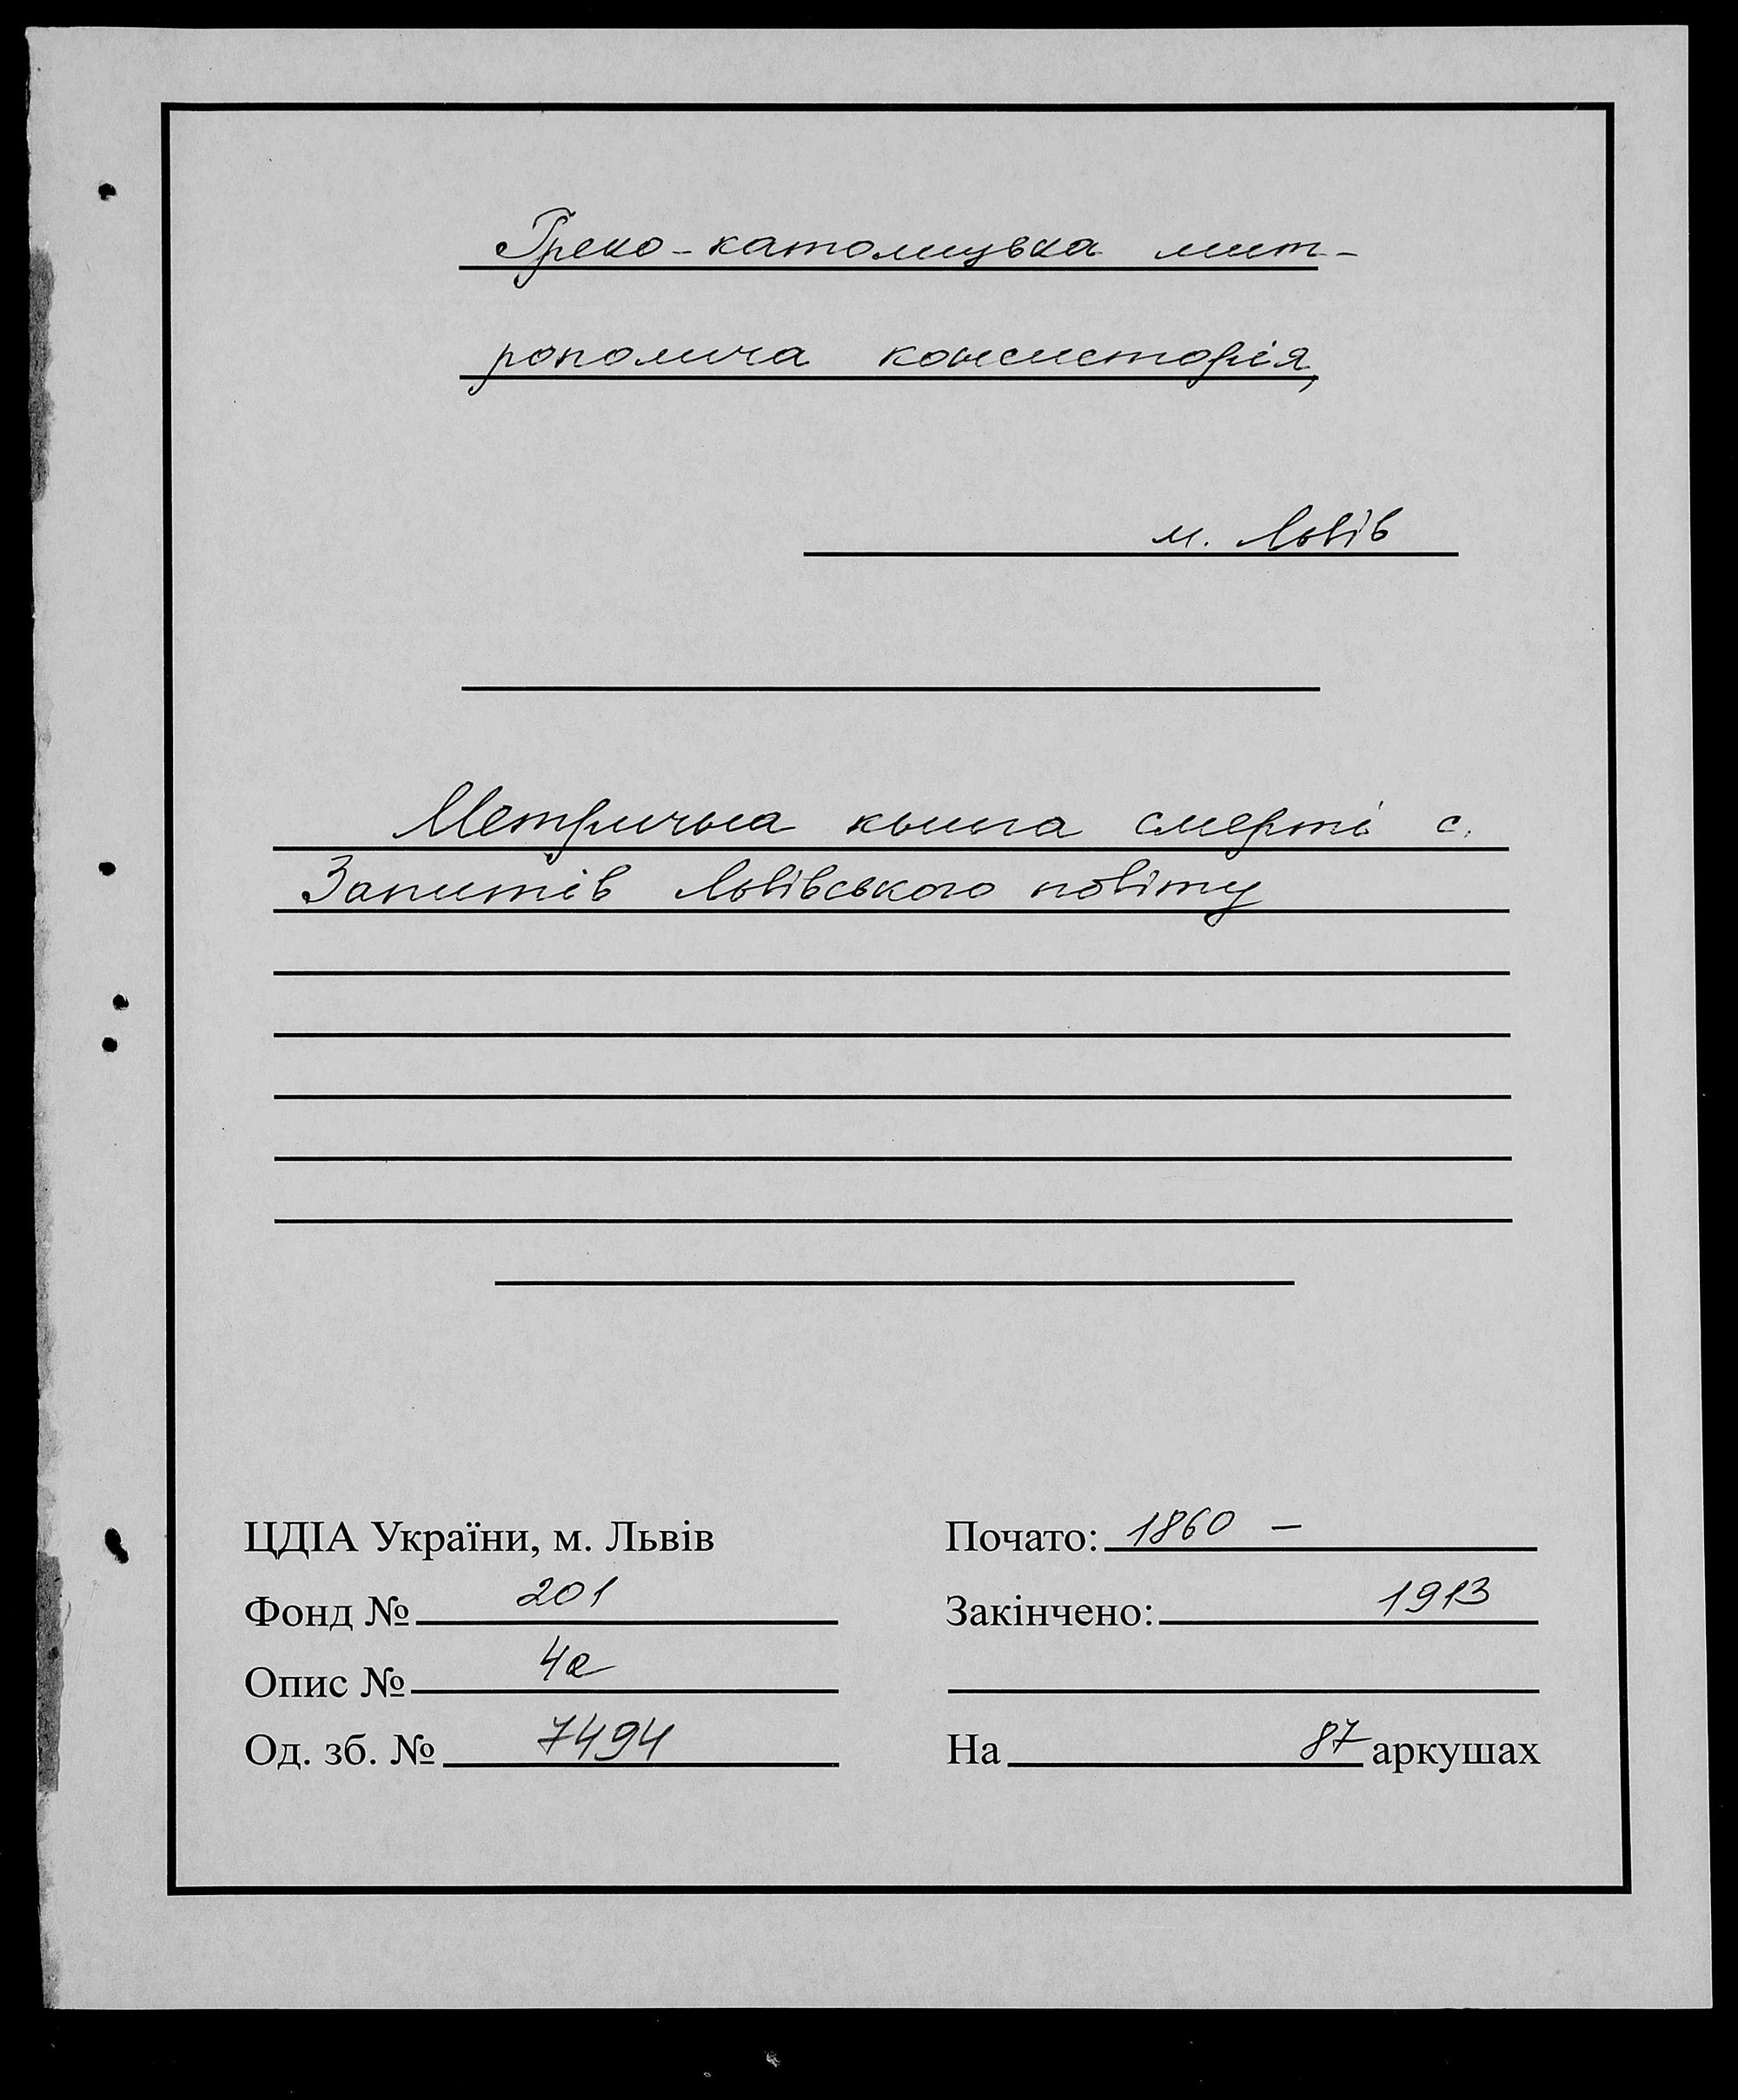 Греко-католицька мит-
рополича консисторія,
м. Львів
Метрична книга смерті с.
Запитів Львівського повіту
ЦДІА України, м. Львів
Фонд № 201
Опис № 4а
Од. зб. № 7494
Почато: 1860 –
Закінчено: 1913
На 87 аркушах